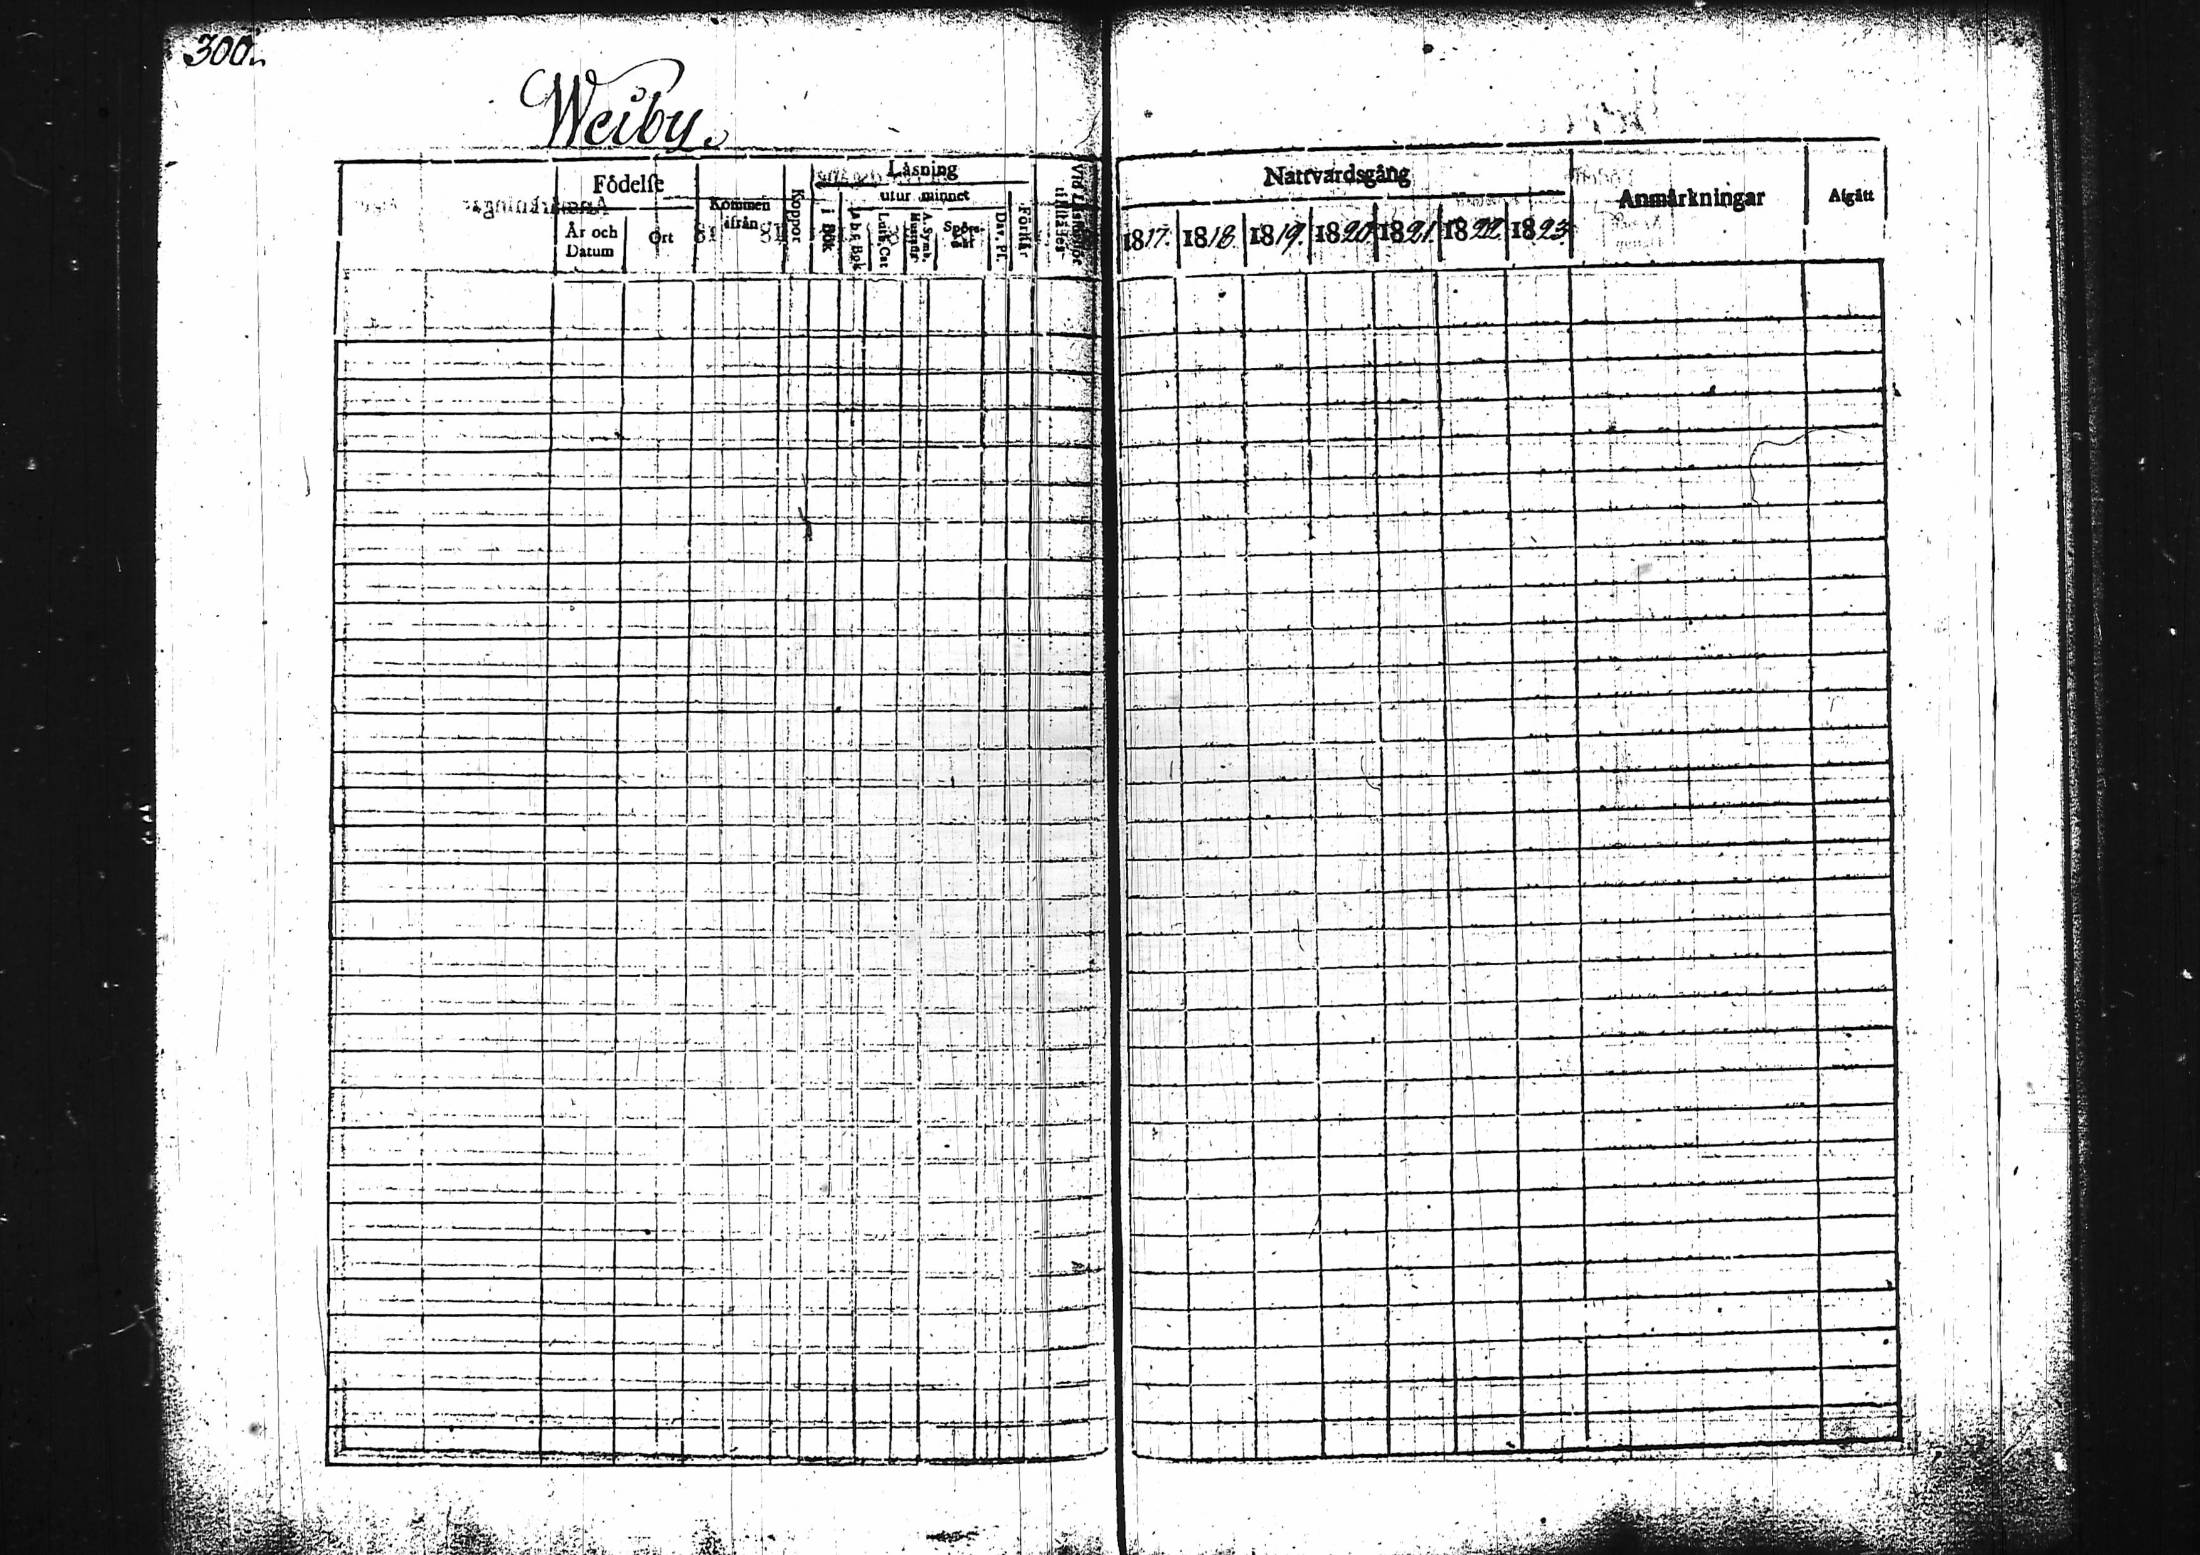 300.
Weiby.
Födelse
År och Datum
Ort
Kommen ifrån
Koppor
Läsning
utur minnet
i Bok
A b c Bok
Luth. Cat
A. Symb.
Spörs-
Dav. Ps.
Förstår
Nattvardsgång
1817. 1818. 1819. 1820 1821. 1822 1823
Anmärkningar
Afgått